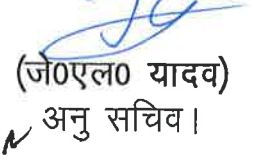 (जे0एल0 यादव)
अनु सचिव।